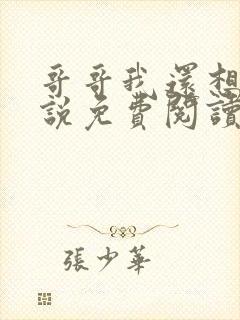 哥哥我還想
説免費閱讀
張少華